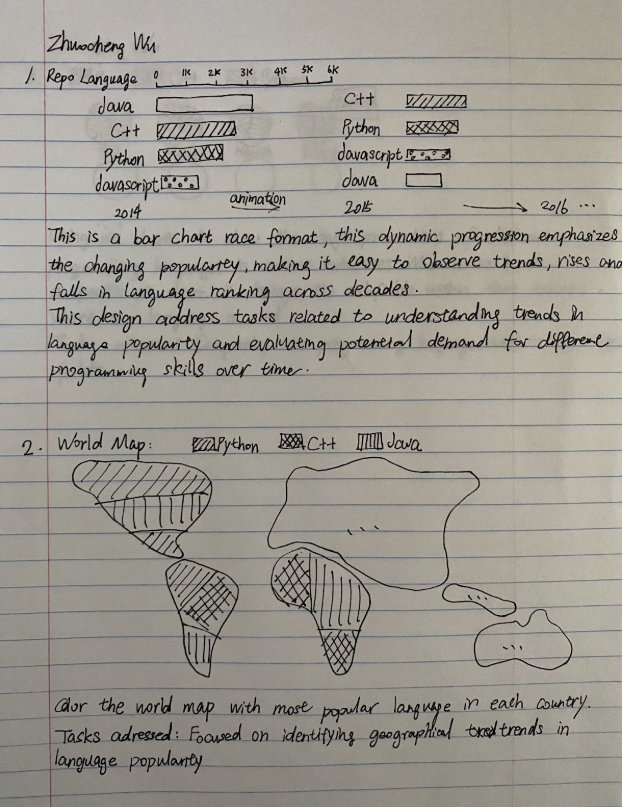 Zhuocheng Wu
1. Repo Language 0 1K 2K 3K 4K 5K 6K
Java C++
C++ Python
Python Javascript
Javascript Java
2014 animation 2015 2016 ...
This is a bar chart race format, this dynamic progression emphasizes
the changing popularity, making it easy to observe trends, rises and
falls in language ranking across decades.
This design address tasks related to understanding trends in
language popularity and evaluating potential demand for different
programming skills over time.
2. World Map: Python C++ Java
...
...
...
Color the world map with most popular language in each country.
Tasks adressed: Focused on identifying geographical trends in
language popularity